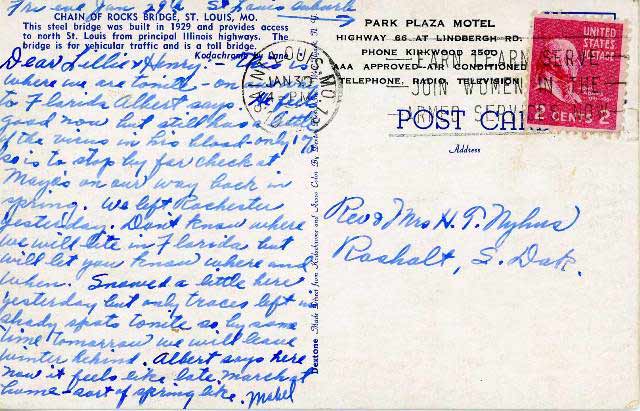 Fri eve Jan 29th St Louis suburb
CHAIN OF ROCKS BRIDGE, ST. LOUIS, MO.
This steel bridge was built in 1929 and provides access
to north St. Louis from principal Illinois highways. The
bridge is for vehicular traffic and is a toll bridge.
Kodachrome by Lane
Dear Lillie & Henry:- This is
where we are tonite - on
to Florida Albert says. He feels
good now but still has a little
of the virus in his blood - only 1%
so is to stop by for check at
Mayo's on our way back in
spring. We left Rochester
yesterday. Don't know where
we will lite in Florida but
will let you know where and
when. Snowed a little here
yesterday but only traces left in
shady spots tonite so by same
time tomorrow we will leave
winter behind. Albert says here
now it feels like late march at
home - sort of spring like. Mabel
Dextone Made Direct from Kodachrome and Ansco Color By Dexter Press
PARK PLAZA MOTEL
HIGHWAY 66 AT LINDBERGH RD.
PHONE KIRKWOOD 2500
AAA APPROVED AIR CONDITIONED
TELEPHONE, RADIO, TELEVISION
SAINT LOUIS, MO. 1
JAN 30
PM
LEARN EARN SERVE
JOIN WOMEN IN THE
ARMED SERVICES
UNITED
STATES
POSTAGE
2 CENTS 2
POST CARD
Address
Rev & Mrs H. T. Nyhus
Rosholt, S. Dak.